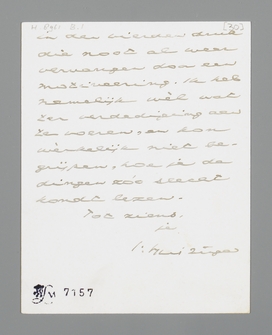 in den vierden druk
die noot al weer
vervangen door een
motiveering. Ik heb
namelijk wèl wat
ter verdediging aan
te voeren, en kon
werkelijk niet be-
grijpen, hoe je de
dingen zóó slecht
kondt lezen.
Tot ziens,
je
J. Huizinga
M 7757